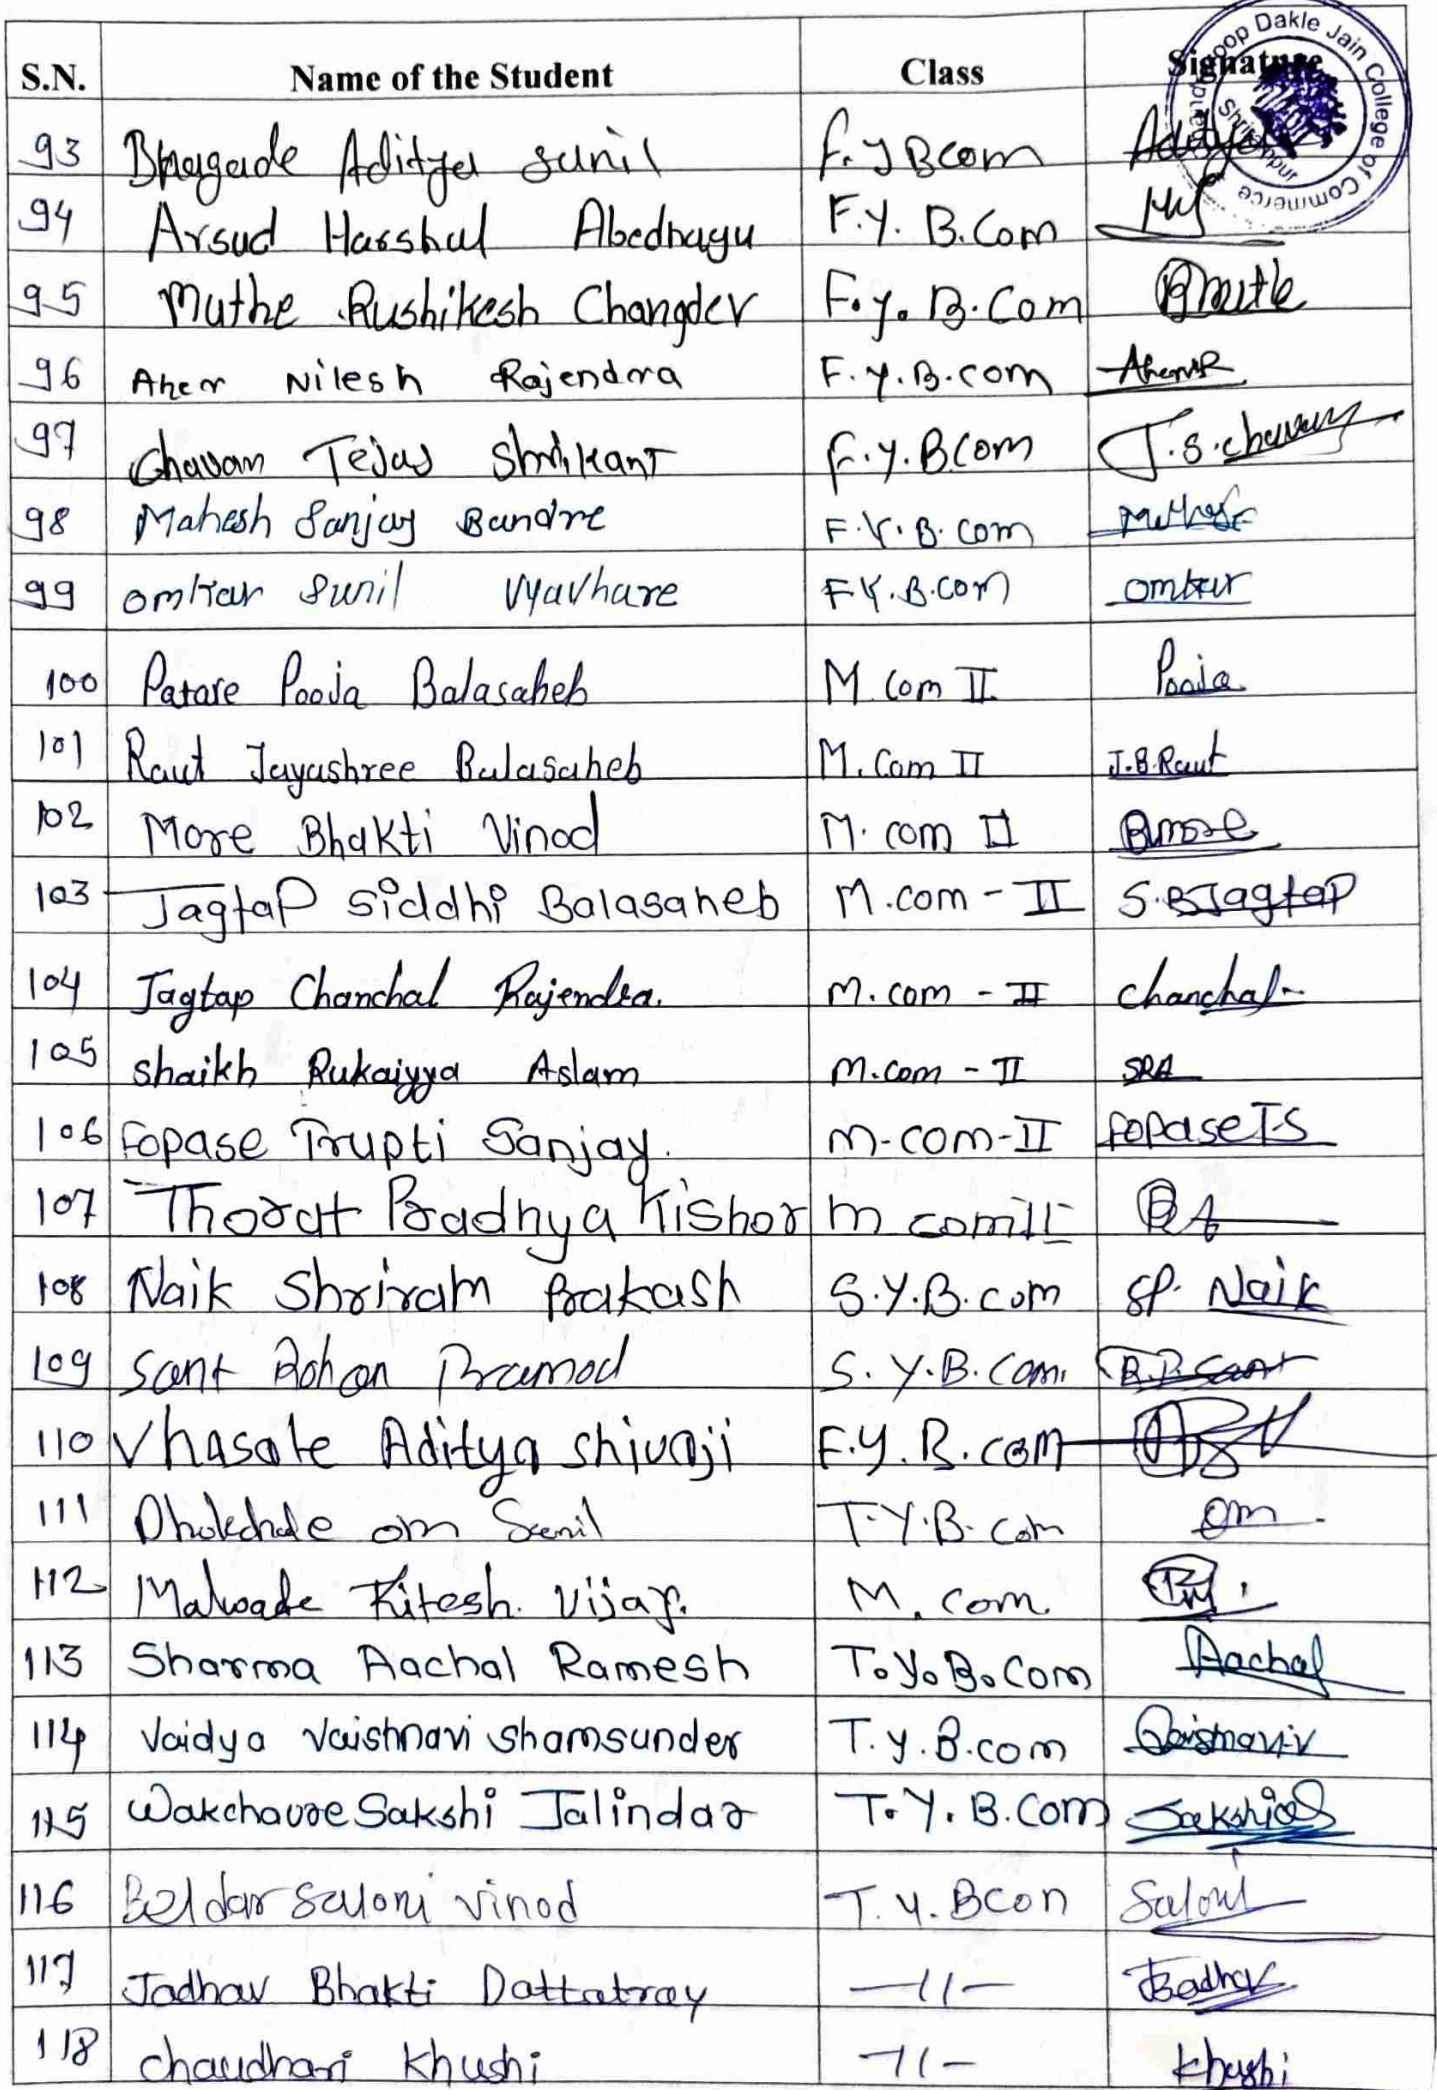 S.N. Name of the Student Class Signature
Chandroop Dakle Jain College of Commerce
Shrirampur
93 Bhagade Aditya Sunil F.Y Bcom Aditya
94 Arsud Harshal Abednagu F.Y. B.Com
95 Muthe Rushikesh Changdev F.Y. B.Com Rmuthe
96 Aher Nilesh Rajendra F.Y.B.com AherNR
97 Chavan Tejas Shrikant F.Y.BCom T.S.chavan
98 Mahesh Sanjay Bandre F.Y.B.com Mahesh
99 omkar Sunil Vyavhare FY.B.com omkar
100 Patare Pooja Balasaheb M.Com II Pooja
101 Raut Jayashree Balasaheb M.Com II J.B.Raut
102 More Bhakti Vinod M.com II Bmore
103 Jagtap Siddhi Balasaheb M.com - II S.BJagtap
104 Jagtap Chanchal Rajendra. M.com - II chanchal
105 Shaikh Rukaiyya Aslam M.com - II SRA
106 Fopase Trupti Sanjay. M-com-II FopaseT.S
107 Thorat Pradnya Kishor M com II
108 Naik Shriram Prakash S.Y.B.com SP. Naik
109 Sant Rohan Pramod S.Y.B.Com. R.P.Sant
110 Vhasate Aditya Shivaji F.Y.B.com
111 Dhokchale om Sunil T.Y.B.com om
112 Malwade Ritesh. Vijay. M.Com.
113 Sharma Aachal Ramesh T.Y.B.Com Aachal
114 Vaidya Vaishnavi Shamsunder T.Y.B.com VaishnaviV
115 Wakchaure Sakshi Jalindar T.Y.B.Com Sakshi
116 Beldar Saloni vinod T.Y.Bcon Saloni
117 Jadhav Bhakti Dattatray —11— Jadhav
118 chaudhari Khushi —11— Khushi